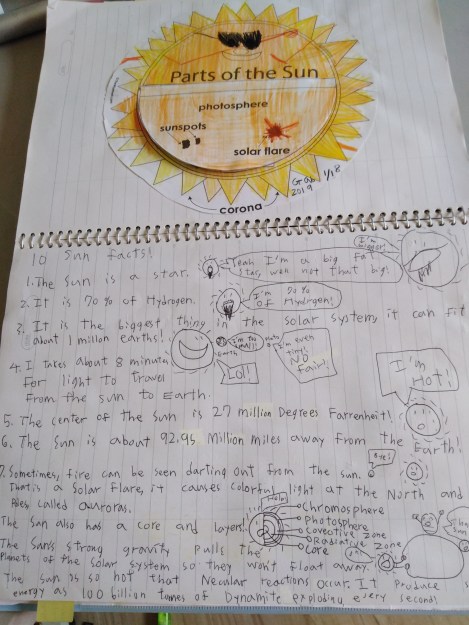 Parts of the Sun
photosphere
sunspots
solar flare
1/18
2019
corona
10 Sun facts!
1. The Sun is a star.
Yeah I'm a big fat
star, well not that big!
I'm bigger!
2. It is 70% of Hydrogen.
I'm 70%
OF Hydrogen!
3. It is the biggest thing in the solar system, it can fit
about 1 millon earths!
I'm too small!
Earth
I'm even
tiny!
NO
Fair!
LOL!
4. I takes about 8 minutes
For light to travel
From the sun to Earth.
I'm
HOT!
5. The center of the Sun is 27 million Degrees Farrenheit!
6. The Sun is about 92.95 Million miles away From the Earth!
Bye!
7. Sometimes, fire can be seen darting out from the sun.
That is a Solar Flare, it causes colorful light at the North and
Poles called auroras.
The Sun also has a core and layers!
Chromosphere
Photosphere
Covective Zone
Radiative Zone
Core
The Sun's strong gravity pulls the
Planets of the solar system so they won't float away.
The sun is so hot that Necular reactions occur. It produce
energy as 100 billion tunnes of Dynamite exploding every second